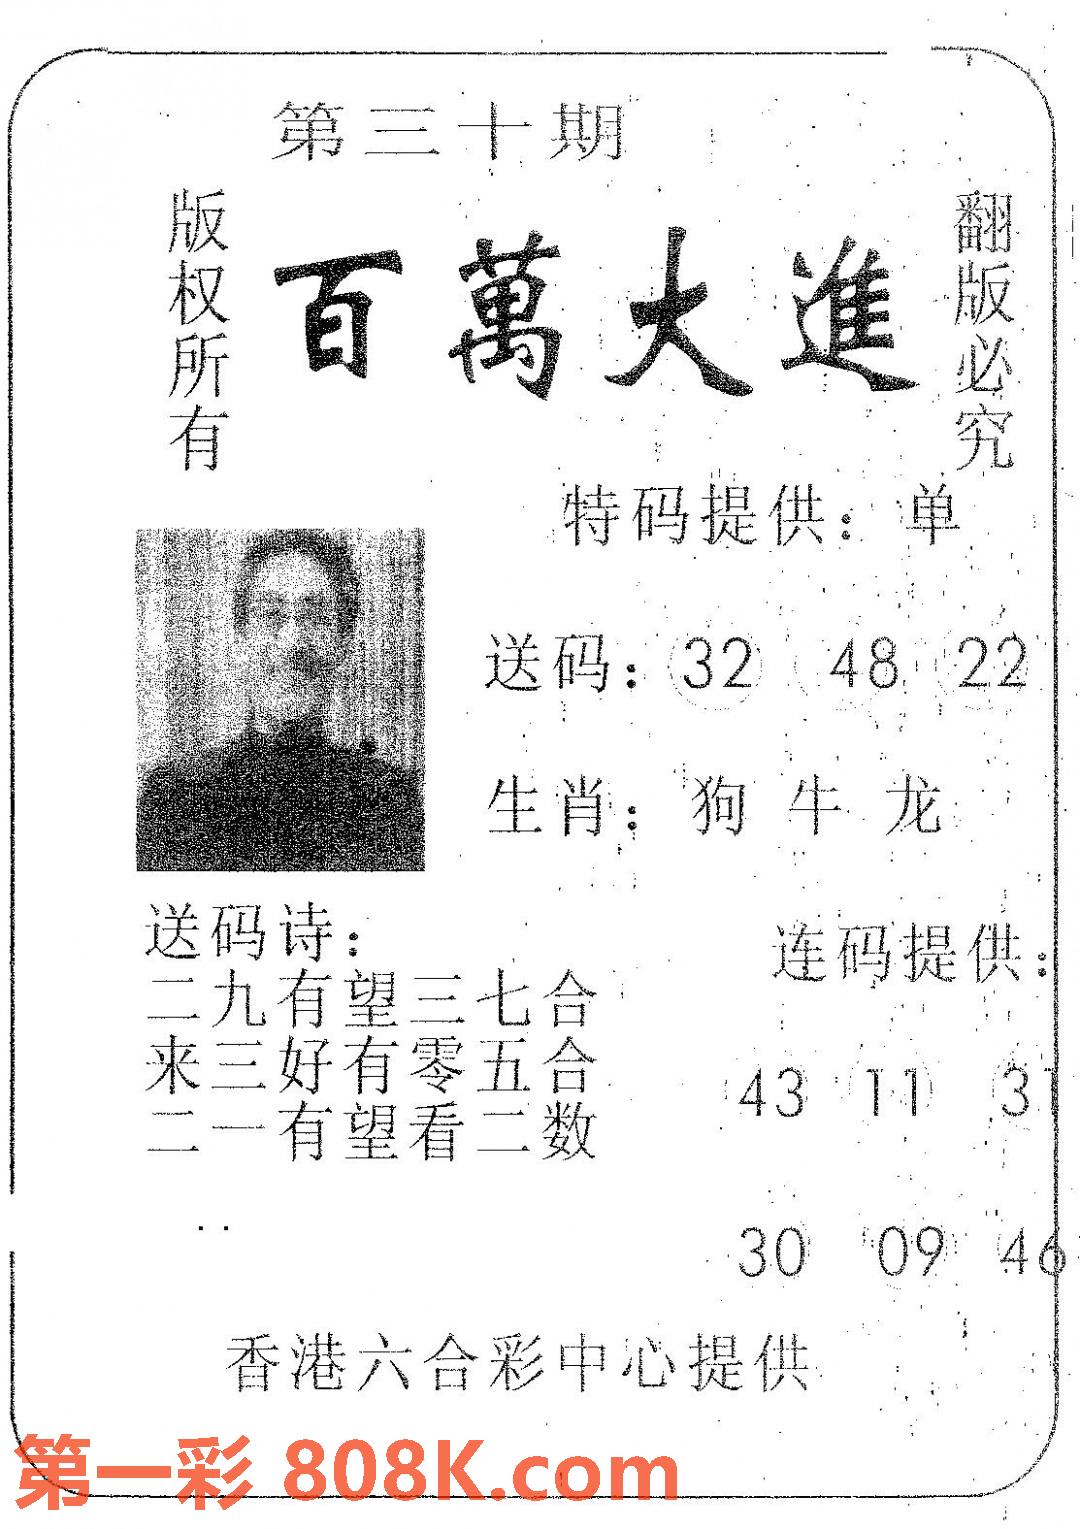 第三十期
版权所有
百萬大進
翻版必究
特码提供：单
送码：32 48 22
生肖：狗 牛 龙
送码诗：
二九有望三七合
来三好有零五合
二一有望看二数
连码提供：
43 11 31
30 09 46
香港六合彩中心提供
第一彩 808K.com